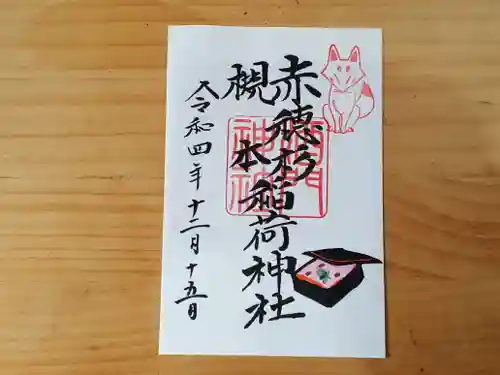 赤穂杉稲荷神社
槻本
令和四年十二月十五日